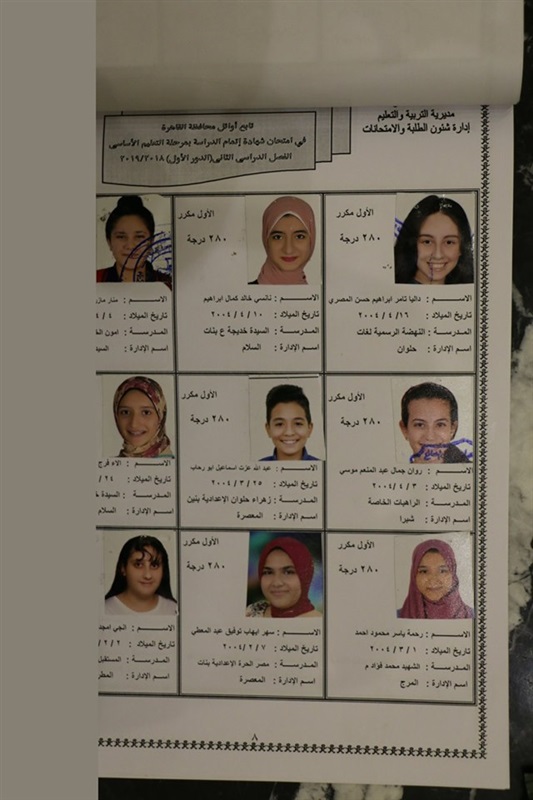 مديرية التربية والتعليم
إدارة شئون الطلبة والامتحانات
تابع أوائل محافظة القاهرة
في امتحان شهادة إتمام الدراسة بمرحلة التعليم الأساسي
الفصل الدراسي الثاني(الدور الأول) ٢٠١٩/٢٠١٨
الأول مكرر
٢٨٠ درجة
الاســـم : داليا تامر ابراهيم حسن المصري
تاريخ الميلاد : ١٦ / ٤ / ٢٠٠٤
المـدرسـة : النهضة الرسمية لغات
اسـم الإدارة : حلوان
الأول مكرر
٢٨٠ درجة
الاســـم : نانسي خالد كمال ابراهيم
تاريخ الميلاد : ١٠ / ٤ / ٢٠٠٤
المـدرسـة : السيدة خديجة ع بنات
اسـم الإدارة : السلام
الاســـم : منار
تاريخ الميلاد :
المـدرسـة : امون
اسـم الإدارة :
الأول مكرر
٢٨٠ درجة
الاســـم : روان جمال عبد المنعم موسي
تاريخ الميلاد : ٣ / ٤ / ٢٠٠٤
المـدرسـة : الراهبات الخاصة
اسـم الإدارة : شبرا
الأول مكرر
٢٨٠ درجة
الاســـم : عبد الله عزت اسماعيل ابو رحاب
تاريخ الميلاد : ٢٥ / ٣ / ٢٠٠٤
المـدرسـة : زهراء حلوان الإعدادية بنين
اسـم الإدارة : المعصرة
الاســـم : الاء فرج
تاريخ الميلاد : ٢٤ /
المـدرسـة : السيدة
اسـم الإدارة : السلام
الأول مكرر
٢٨٠ درجة
الاســـم : رحمة ياسر محمود احمد
تاريخ الميلاد : ١ / ٣ / ٢٠٠٤
المـدرسـة : الشهيد محمد فؤاد م
اسـم الإدارة : المرج
الأول مكرر
٢٨٠ درجة
الاســـم : سهر ايهاب توفيق عبد المعطي
تاريخ الميلاد : ٧ / ٢ / ٢٠٠٤
المـدرسـة : مصر الحرة الإعدادية بنات
اسـم الإدارة : المعصرة
الاســـم : انجي امجد
تاريخ الميلاد : ٢ / ٢
المـدرسـة : المستقبل
اسـم الإدارة :
٨